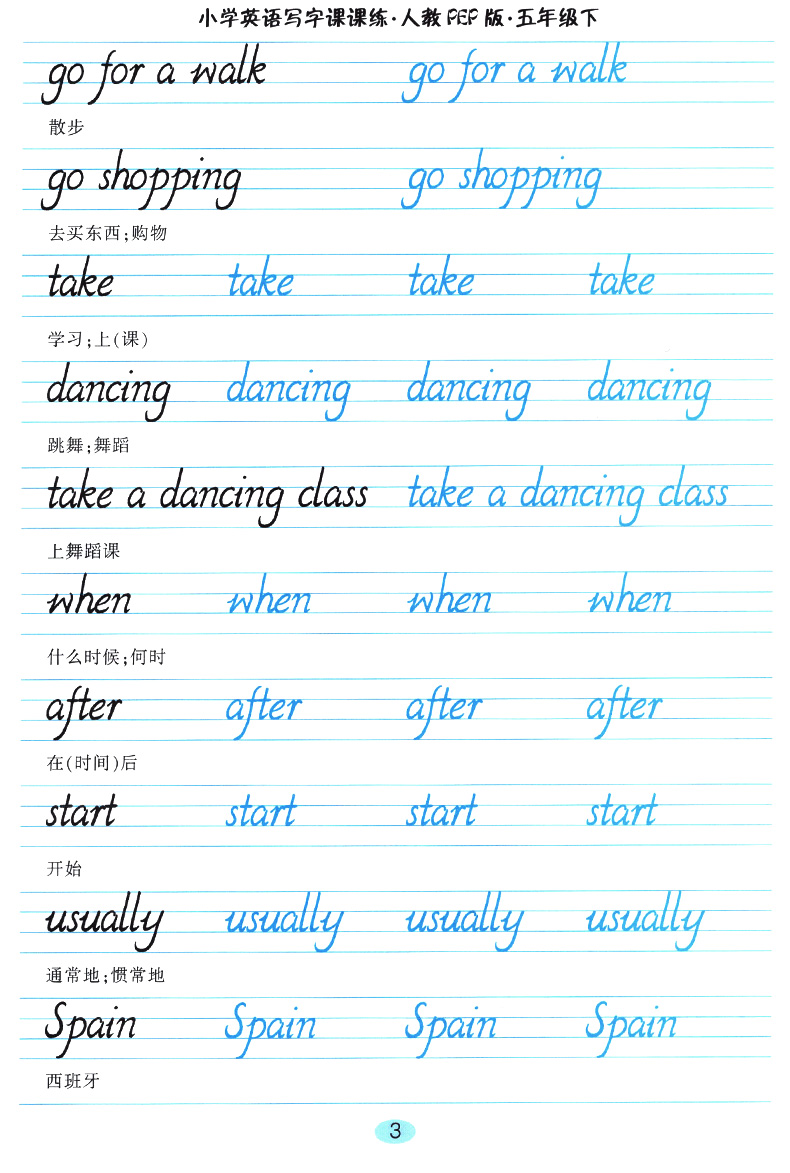 小学英语写字课课练·人教PEP版·五年级下
go for a walk go for a walk
散步
go shopping go shopping
去买东西;购物
take take take take
学习;上(课)
dancing dancing dancing dancing
跳舞;舞蹈
take a dancing class take a dancing class
上舞蹈课
when when when when
什么时候;何时
after after after after
在(时间)后
start start start start
开始
usually usually usually usually
通常地;惯常地
Spain Spain Spain Spain
西班牙
3